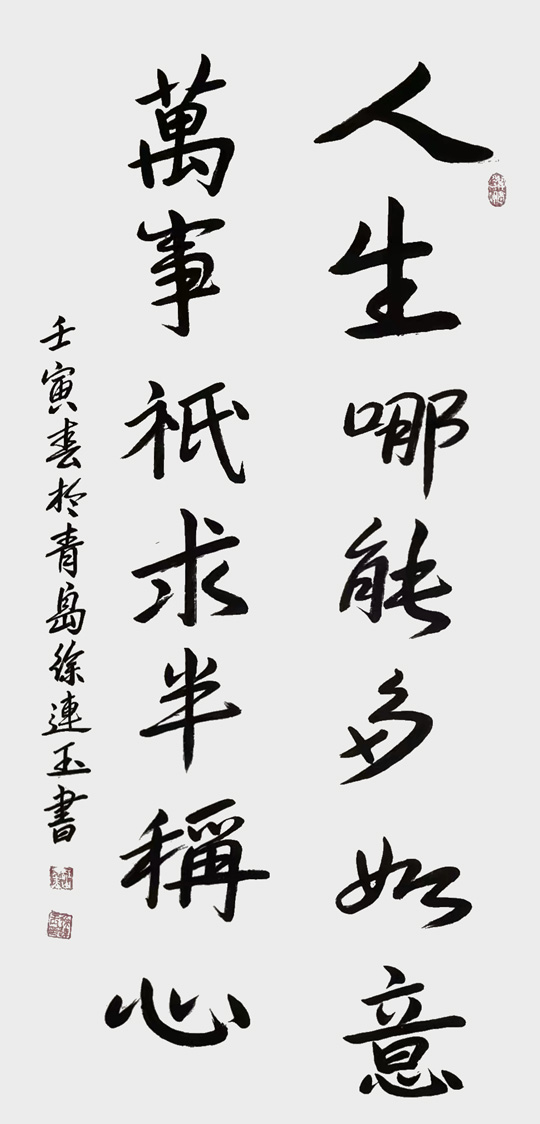 人生哪能多如意
萬事祇求半稱心
壬寅春於青島徐連玉書